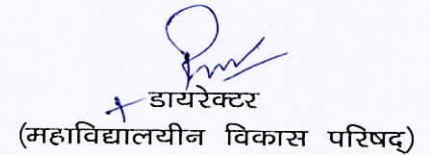 डायरेक्टर
(महाविद्यालयीन विकास परिषद्)